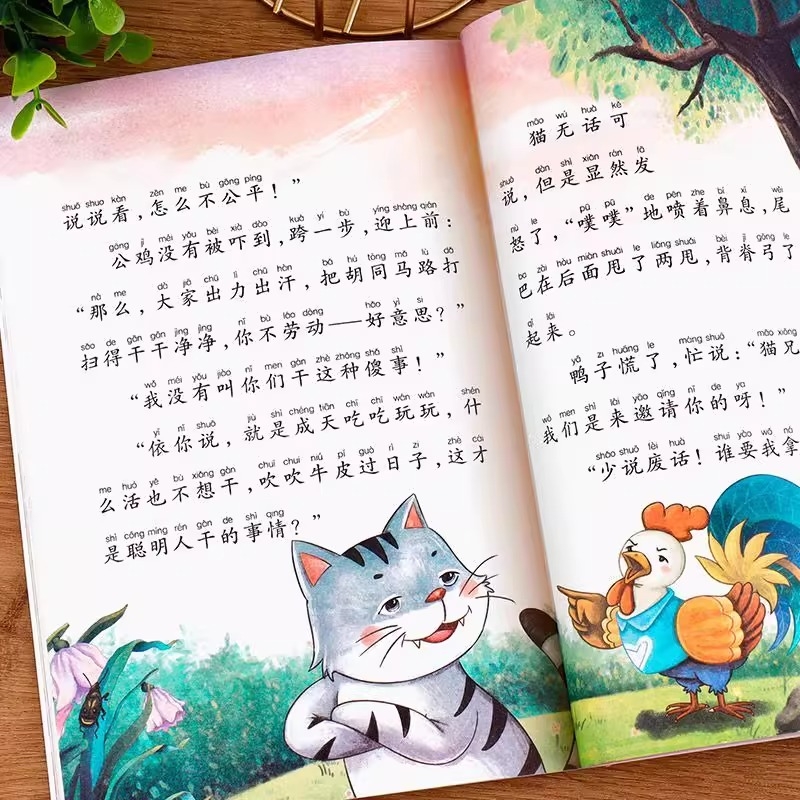 shuō shuo kàn zěn me bù gōng píng
说说看，怎么不公平！”
gōng jī méi yǒu bèi xià dào kuà yí bù yíng shàng qián
公鸡没有被吓到，跨一步，迎上前：
nà me dà jiā chū lì chū hàn bǎ hú tòng mǎ lù dǎ
“那么，大家出力出汗，把胡同马路打
sǎo de gān gān jìng jìng nǐ bù láo dòng hǎo yì si
扫得干干净净，你不劳动——好意思？”
wǒ méi yǒu jiào nǐ men gàn zhè zhǒng shǎ shì
“我没有叫你们干这种傻事！”
yī nǐ shuō jiù shì chéng tiān chī chī wán wán shén
“依你说，就是成天吃吃玩玩，什
me huó yě bù xiǎng gàn chuī chui niú pí guò rì zi zhè cái
么活也不想干，吹吹牛皮过日子，这才
shì cōng míng rén gàn de shì qing
是聪明人干的事情？”
māo wú huà kě
猫无话可
shuō dàn shì xiǎn rán fā
说，但是显然发
nù le pū pū de pēn zhe bí xī wěi
怒了，“噗噗”地喷着鼻息，尾
ba zài hòu miàn shuǎi le liǎng shuǎi bèi jǐ gōng le
巴在后面甩了两甩，背脊弓了
qǐ lái
起来。
yā zi huāng le máng shuō māo xiōng
鸭子慌了，忙说：“猫兄
wǒ men shì lái yāo qǐng nǐ de ya
我们是来邀请你的呀！”
shǎo shuō fèi huà shuí yào wǒ ná
“少说废话！谁要我拿